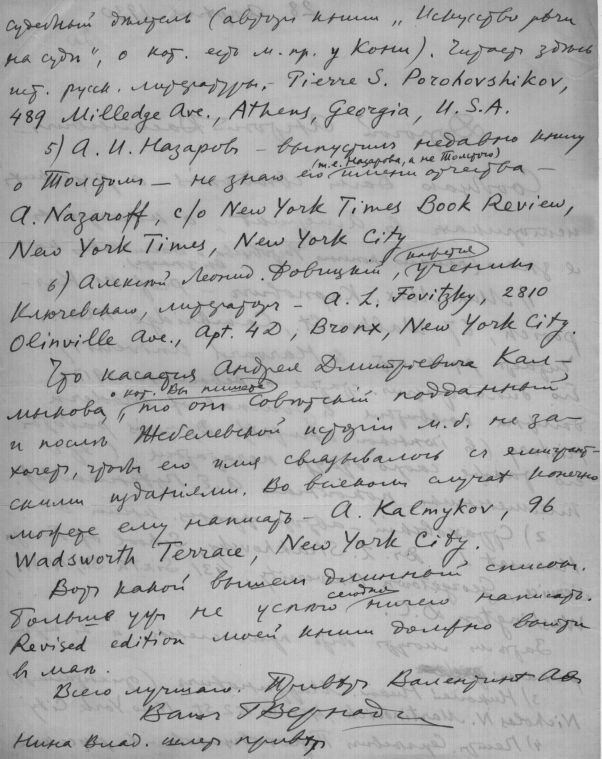 судебный дѣятель (авторъ книги „Искусство рѣчи
на судѣ", о кот. есть м. пр. у Кони). Читаетъ здѣсь
ист. русск. литературы, - Pierre S. Porohovshikov,
489 Milledge Ave., Athens, Georgia, U.S.A.
5) А. И. Назаровъ - выпустилъ недавно книгу
о Толстомъ — не знаю его (т.е. Назарова, а не Толстого) имени отчества -
A. Nazaroff, c/o New York Times Book Review,
New York Times, New York City
6) Алексѣй Леонид. Фовицкій, кажется ученикъ
Ключевскаго, литераторъ - A. L. Fovitzky, 2810
Olinville Ave., Apt. 4D, Bronx, New York City.
Что касается Андрея Дмитріевича Кал-
мыкова, о кот. Вы пишете, то онъ Совѣтскій подданный
и послѣ Жебелевской исторіи м.б. не за-
хочетъ, чтобы его имя связывалось съ эмигрант-
скими изданіями. Во всякомъ случаѣ конечно
можете ему написать - A. Kalmykov, 96
Wadsworth Terrace, New York City.
Вотъ какой вышелъ длинный списокъ.
Больше ужъ не успѣю сегодня ничего написать.
Revised edition моей книги должно выйти
въ маѣ.
Всего лучшаго. Привѣтъ Валентинѣ
Вашъ Г Вернадскій
Нина Влад. шлетъ привѣтъ